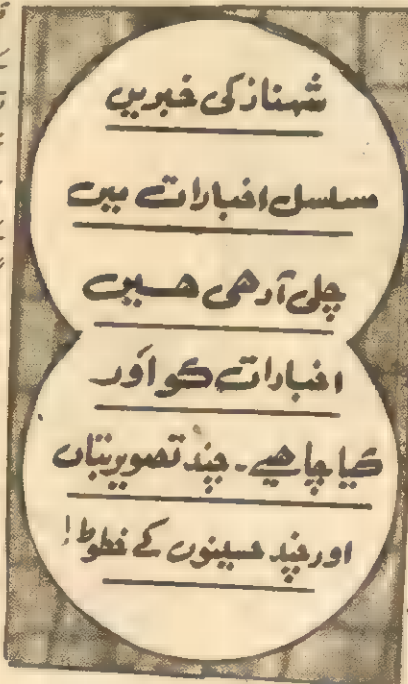 شہناز کی خبریں
مسلسل اخبارات میں
چلی آرھی ھیں
اخبارات کو اور
کیا چاھیے ۔ چند تصویر بتاں
اور چند حسینوں کے خطوط!